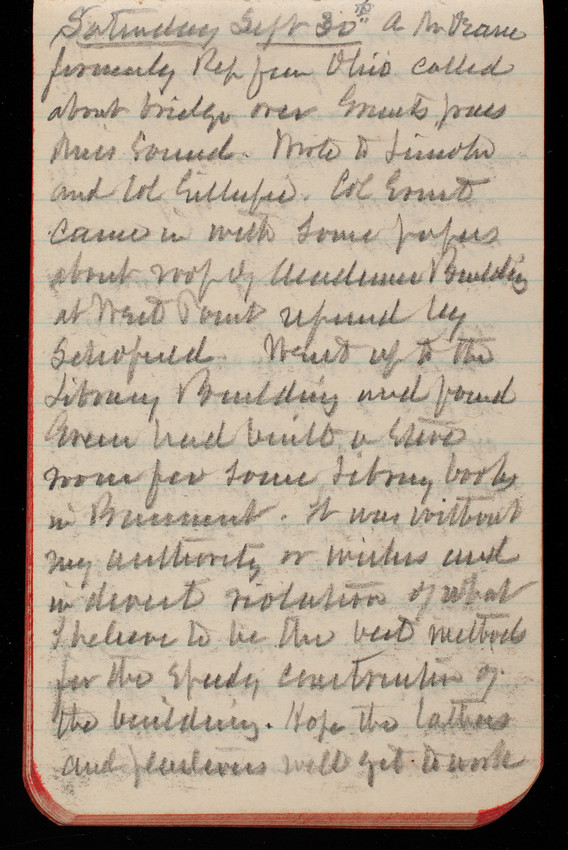 Saturday Sept 30th A
formerly Rep from Ohio called
about bridge over Grants pass
Miss Sound. Wrote to Lincoln
and Col Gillespie. Col Ernst
came in with some papers
about roof of Academic Building
at West Point refused by
Schofield. Went up to the
Library Building and found
Green had built a store
room for some Library books
in Basement. It was without
my authority or wishes and
in direct violation of what
I believe to be the best methods
for the speedy construction of
the building. Hope the lathers
and plasterers will get to work